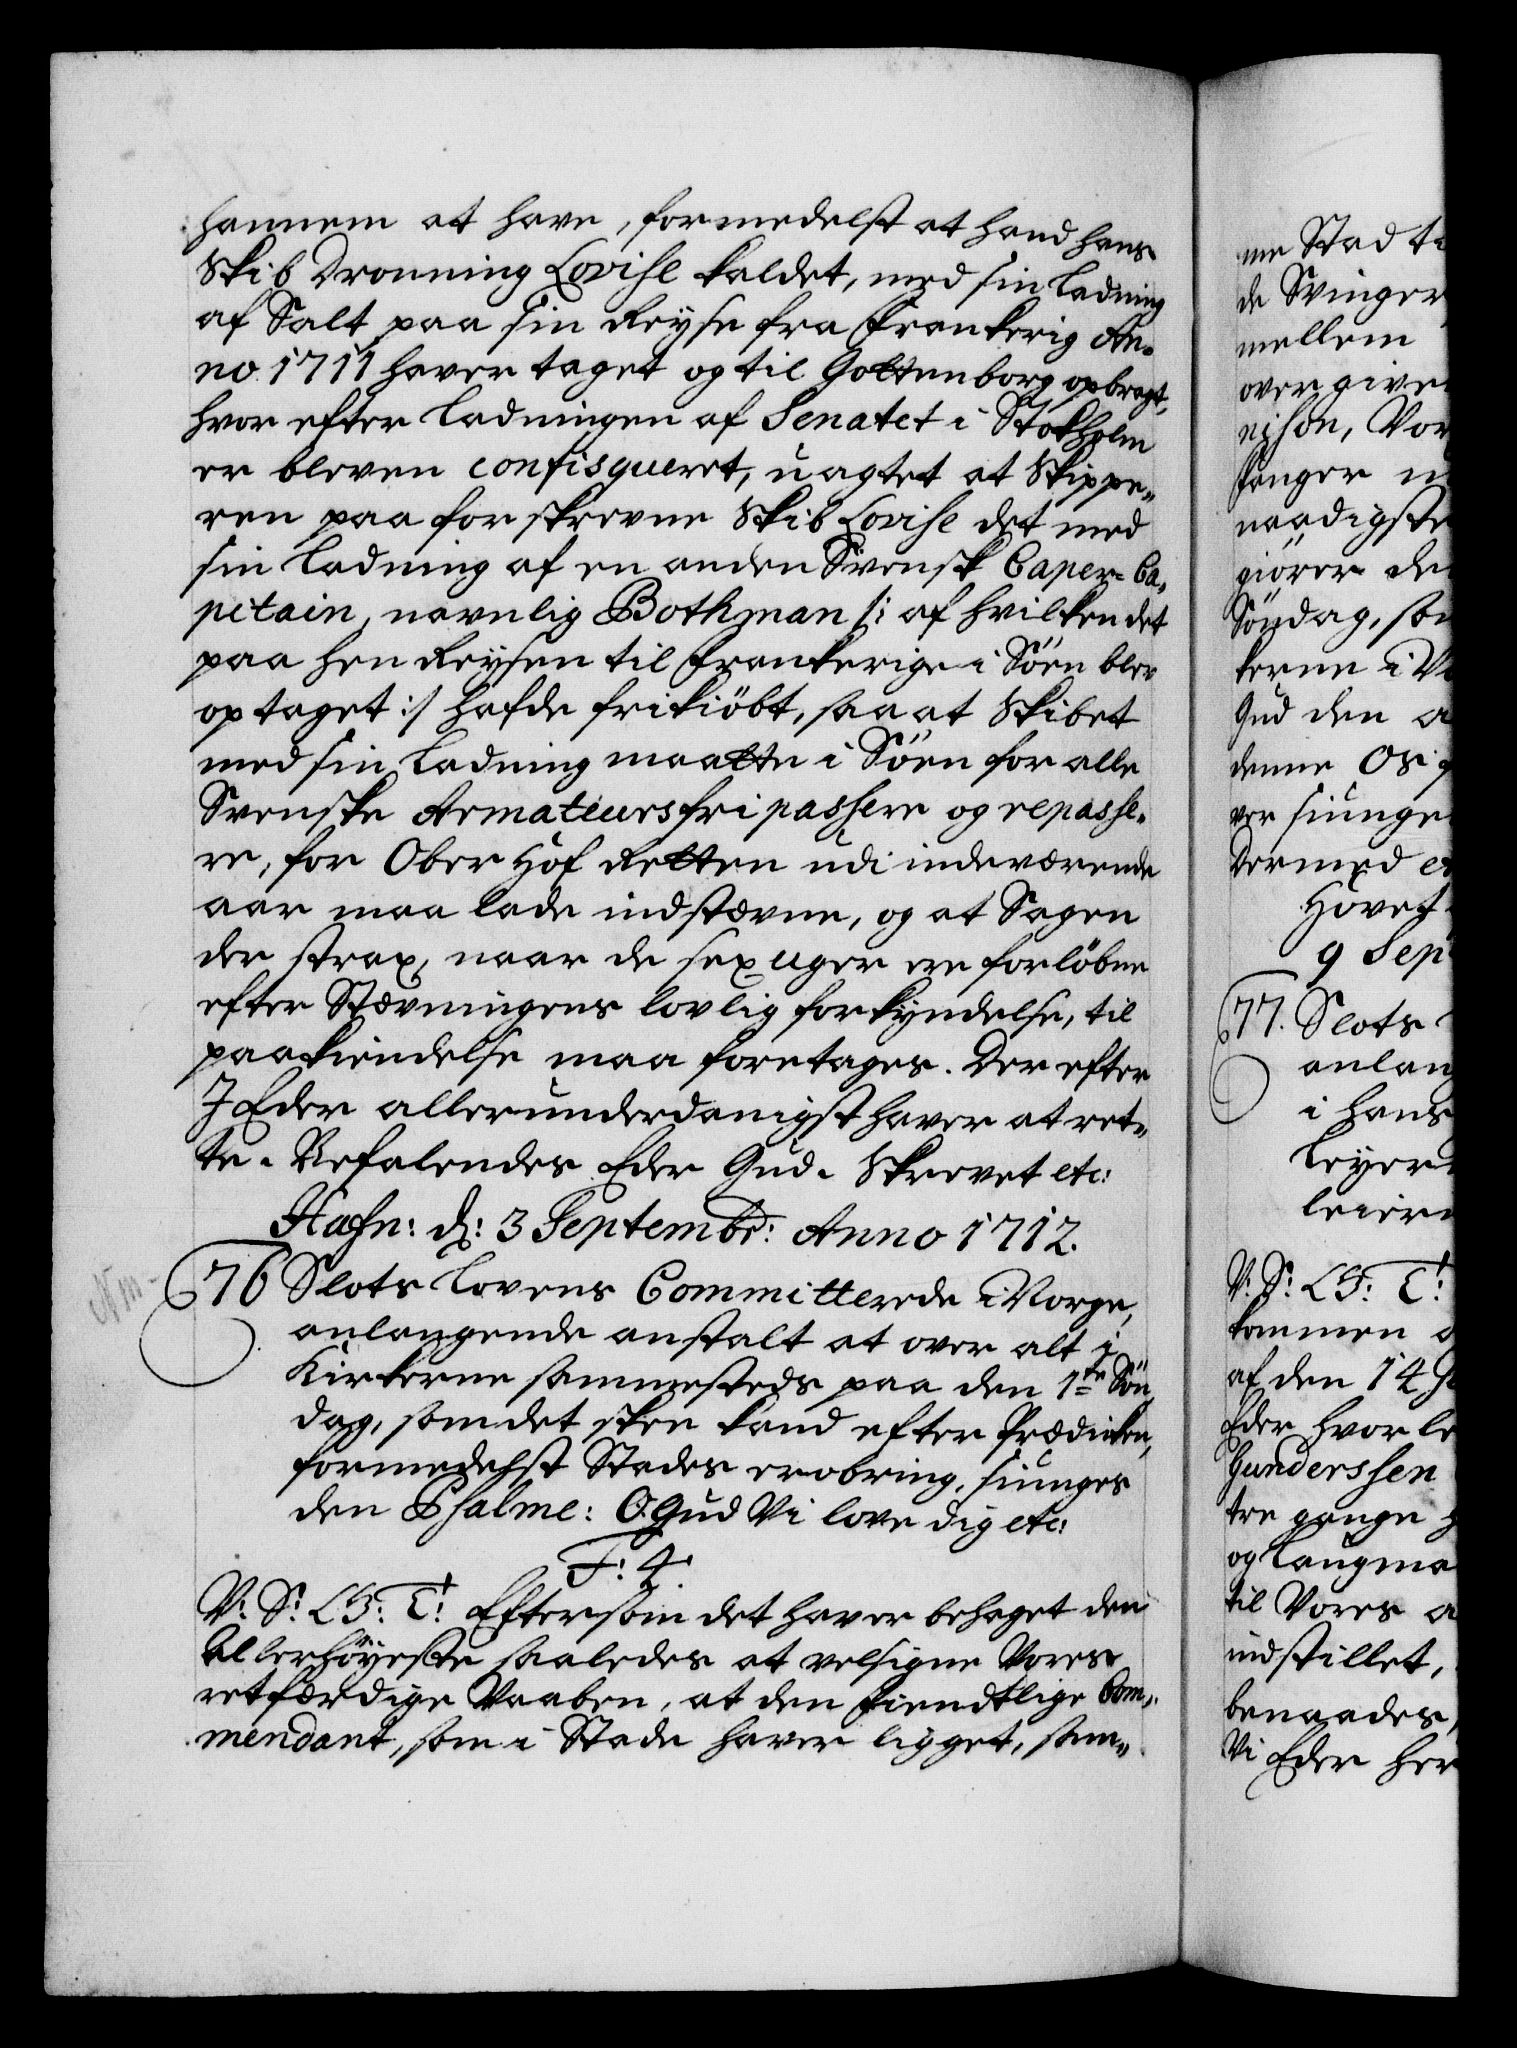 hannem at have, formedelst at hand hans
Skib Dronning Lovise kaldet, med sin Ladning
af Salt paa sin Reyse fra Frankerig An-
no 1711 haver taget og til Gottenborg opbragt,
hvor efter Ladningen af Senatet i Stokholm
er bleven confisqueret, uagtet at Skippe-
ren paa forskrevne Skib Lovise det med
sin Ladning af en anden Svensk Caper-Ca-
pitain, navnlig Bothman /: af hvilken det
paa hen Reysen til Frankerige i Söen blev
optaget :/ hafde frikiöbt, saa at Skibet
med sin Ladning maatte i Söen for alle
Svenske Armateurs fri passere og repasse-
re, for Ober Hof Retten udi indeværende
aar maa lade indstævne, og at Sagen
der strax, naar de sex uger ere forlöbne
efter Stævningens lovlig forkyndelse, til
paakiendelse maa foretages. Der efter
I Eder allerunderdanigst haver at ret-
te. Befalendes Eder Gud. Skrevet etc:
Hafn: d: 3 Septembr: Anno 1712.
76 Slots Lovens Committerede i Norge,
anlangende anstalt at over alt i
Kirkerne sammesteds paa den 1te Sön-
dag, som det skee kand efter Prædicken,
formedelst Stades erobring, siunges
den Psalme: O Gud Vi love dig etc:
F: 4.
V: S: G: T: Eftersom det haver behaget den
Allerhöyeste saaledes at velsigne Vores
retfærdige Vaaben, at den fiendtlige Com-
mendant, som i Stade haver ligget, sam-
me Stad
de Svinger
mellem
over give
nison, Vor
fanger
naadigste
giörer
Söndag, som
kerne i
Gud den
denne Os
ver siunge
Dermed
Hovet
9 Sep
77. Slots
anlang
i hans
Leyer
leier
V: S: G: T:
kommen
af den 14
Eder hvor le
Gunderssen
tre gange
og Laugma
til Vores
indstillet,
benaades,
Vi Eder her